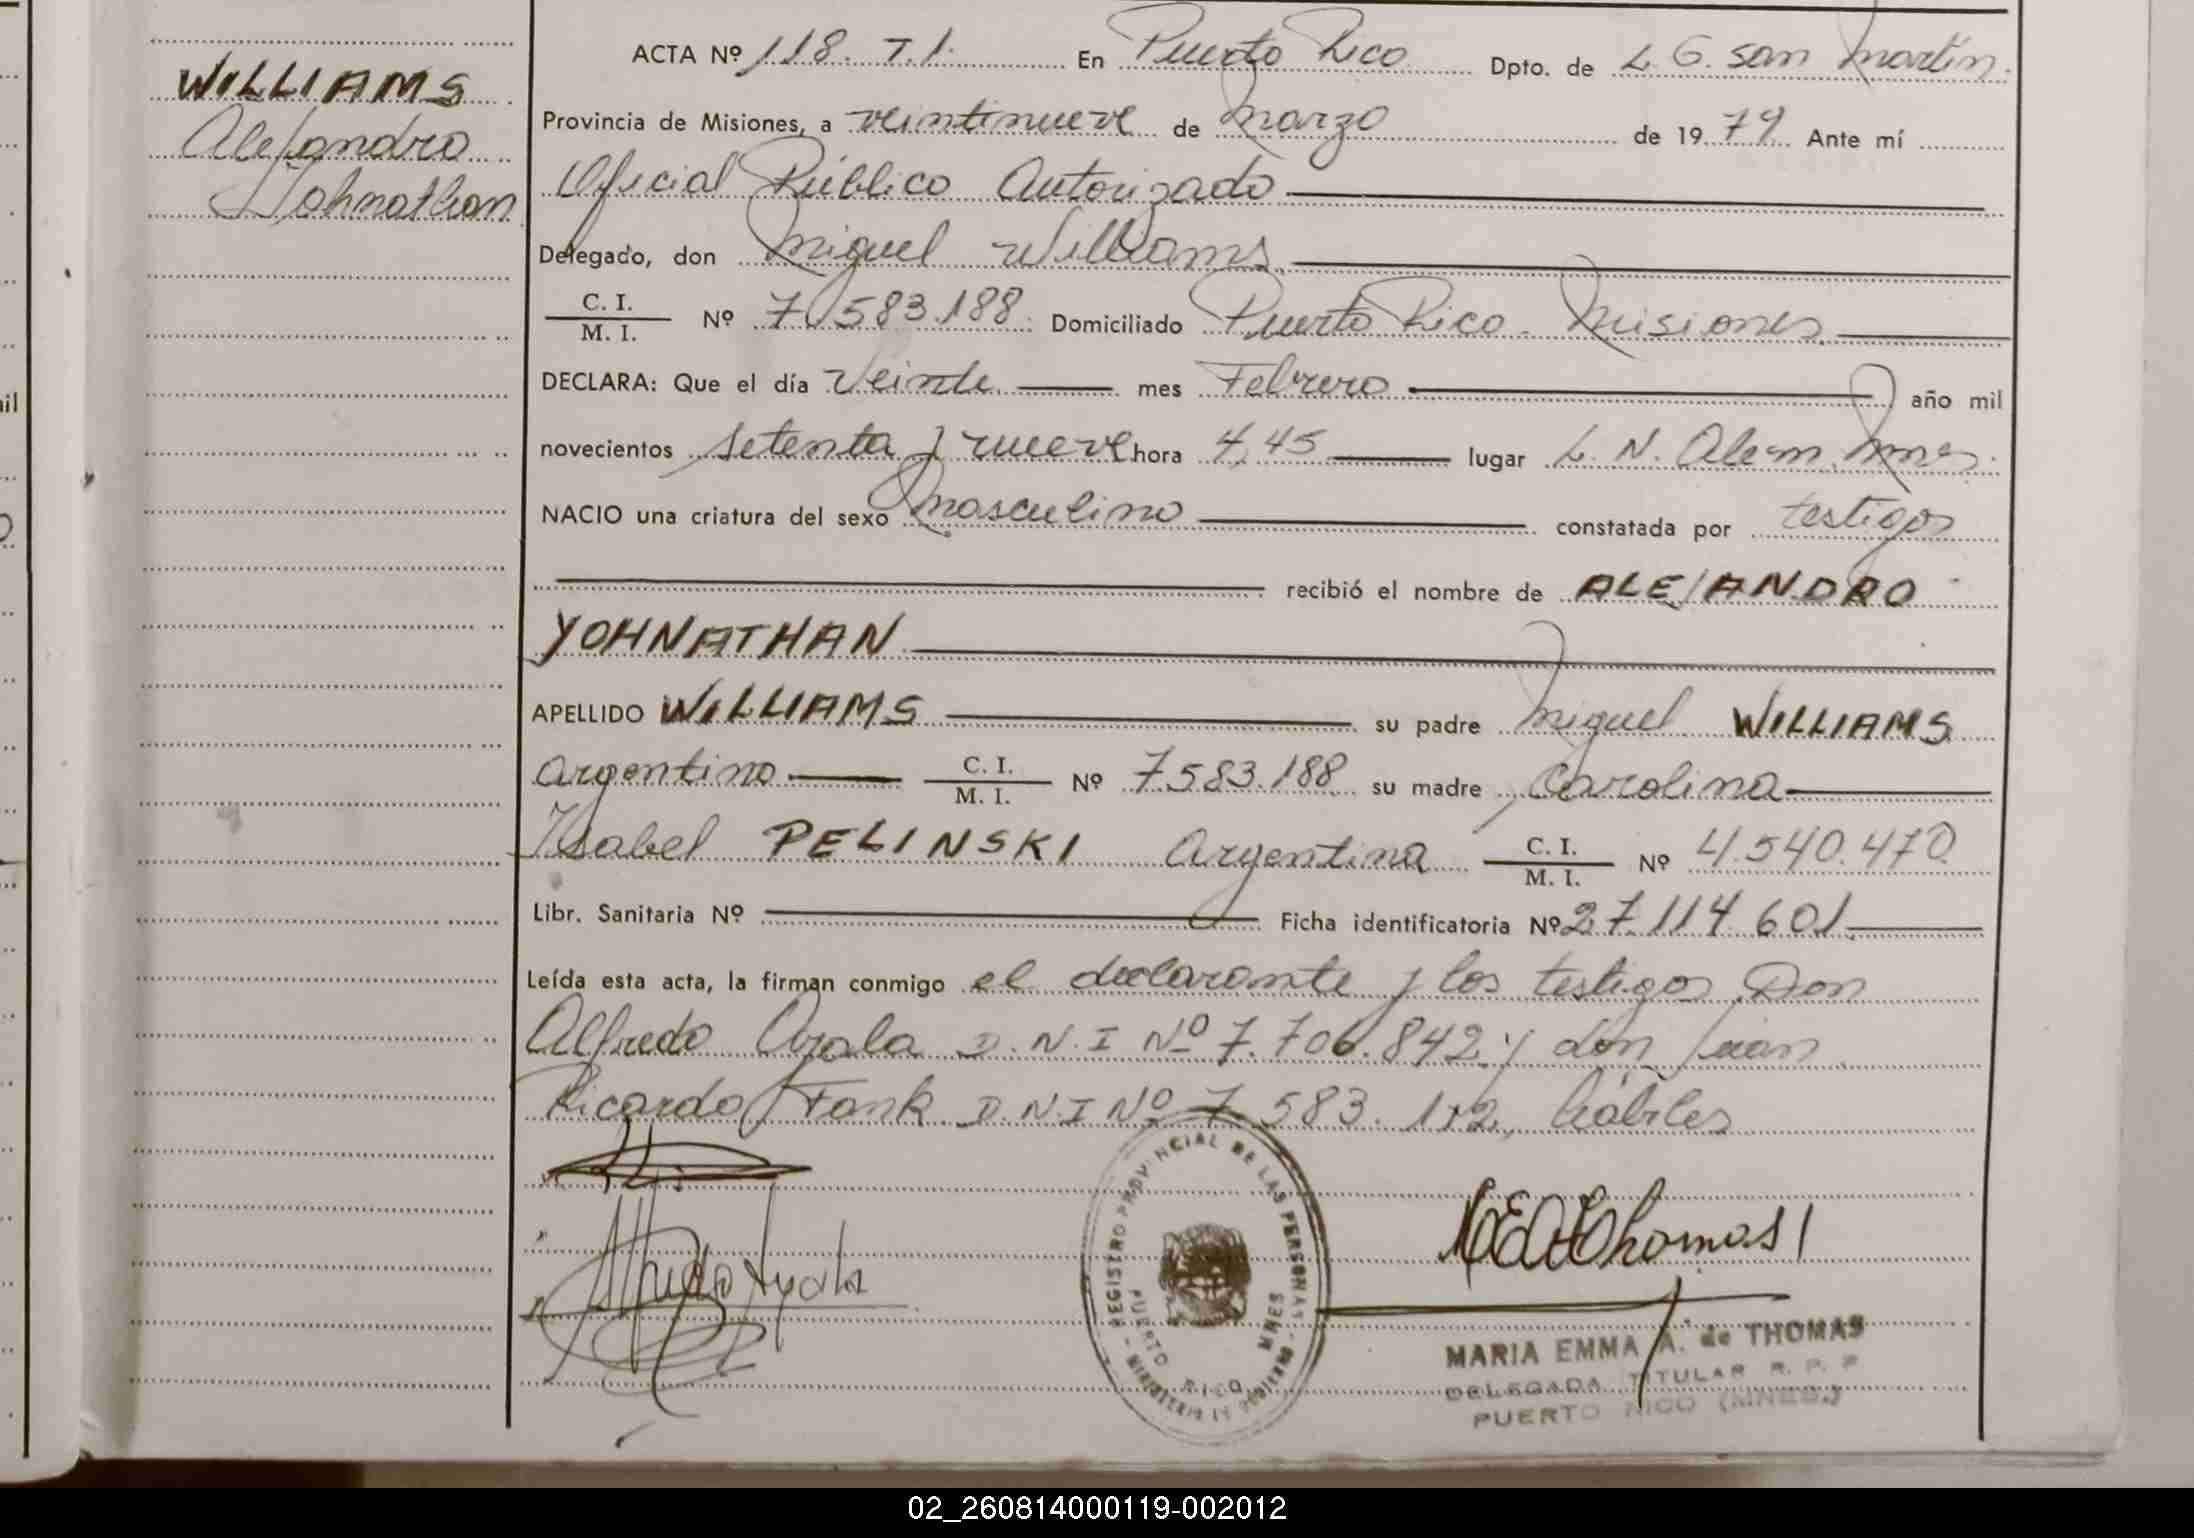 WILLIAMS
Alejandro
Yohnathan
ACTA Nº 118. T.1. En Puerto Rico Dpto. de L. G. San Martín.
Provincia de Misiones, a veintinueve de Marzo de 1979 Ante mí
Oficial Público Autorizado
Delegado, don Miguel Williams.
C. I.
M. I.
Nº 7.583.188. Domiciliado Puerto Rico - Misiones.
DECLARA: Que el día Veinte mes Febrero año mil
novecientos setenta y nueve hora 4,45 lugar L. N. Alem. Mnes.
NACIO una criatura del sexo masculino constatada por testigos
recibió el nombre de ALEJANDRO
YOHNATHAN
APELLIDO WILLIAMS su padre Miguel WILLIAMS
argentino C. I.
M. I.
Nº 7.583.188 su madre Carolina
Ysabel PELINSKI Argentina C. I.
M. I.
Nº 4.540.470.
Libr. Sanitaria Nº Ficha identificatoria Nº 27.114.601.
Leída esta acta, la firman conmigo el declarante y los testigos Don
Alfredo Ayala D.N.I Nº 7.706.842 y don Juan
Ricardo Fank D.N.I Nº 7.583. hábiles
Alfredo Ayala
REGISTRO PROVINCIAL DE LAS PERSONAS
PUERTO RICO
MNES
MEAdeThomas
MARIA EMMA A. de THOMAS
DELEGADA TITULAR R. P. P.
PUERTO RICO (MNES.)
02_260814000119-002012